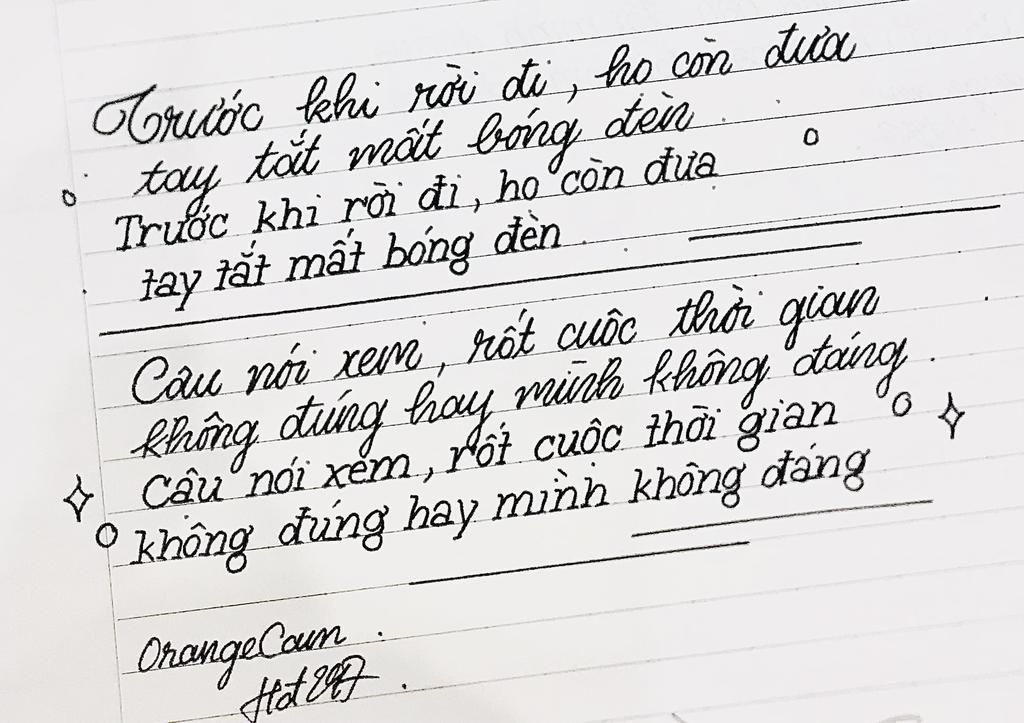 Trước khi rời đi, họ còn đưa
tay tắt mất bóng đèn.
Trước khi rời đi, họ còn đưa
tay tắt mất bóng đèn.
Cậu nói xem, rốt cuộc thời gian
không đúng hay mình không đáng.
Cậu nói xem, rốt cuộc thời gian
không đúng hay mình không đáng
OrangeCam.